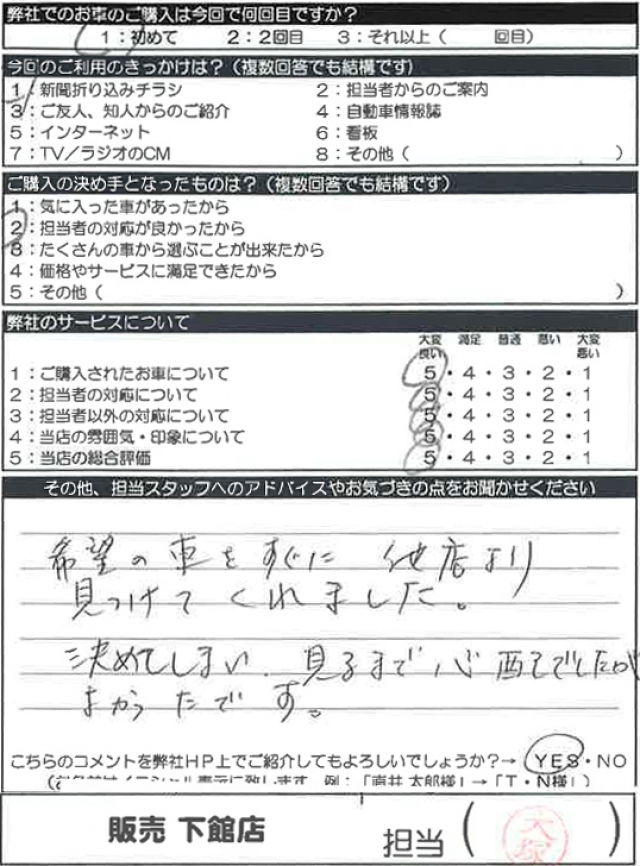 弊社でのお車のご購入は今回で何回目ですか？
1：初めて　2：2回目　3：それ以上（　回目）
今回のご利用のきっかけは？（複数回答でも結構です）
1：新聞折り込みチラシ　2：担当者からのご案内
3：ご友人、知人からのご紹介　4：自動車情報誌
5：インターネット　6：看板
7：TV／ラジオのCM　8：その他（　）
ご購入の決め手となったものは？（複数回答でも結構です）
1：気に入った車があったから
2：担当者の対応が良かったから
3：たくさんの車から選ぶことが出来たから
4：価格やサービスに満足できたから
5：その他（　）
弊社のサービスについて
大変良い　満足　普通　悪い　大変悪い
1：ご購入されたお車について　5・4・3・2・1
2：担当者の対応について　5・4・3・2・1
3：担当者以外の対応について　5・4・3・2・1
4：当店の雰囲気・印象について　5・4・3・2・1
5：当店の総合評価　5・4・3・2・1
その他、担当スタッフへのアドバイスやお気づきの点をお聞かせください
希望の車をすぐに他店より
見つけてくれました。
決めてしまい、見るまで心配でしたが
よかったです。
こちらのコメントを弊社HP上でご紹介してもよろしいでしょうか？→ YES・NO
（お名前はイニシャル表示に致します 例：「直井 太郎様」→「T・N様」）
販売 下館店　担当（大塚）